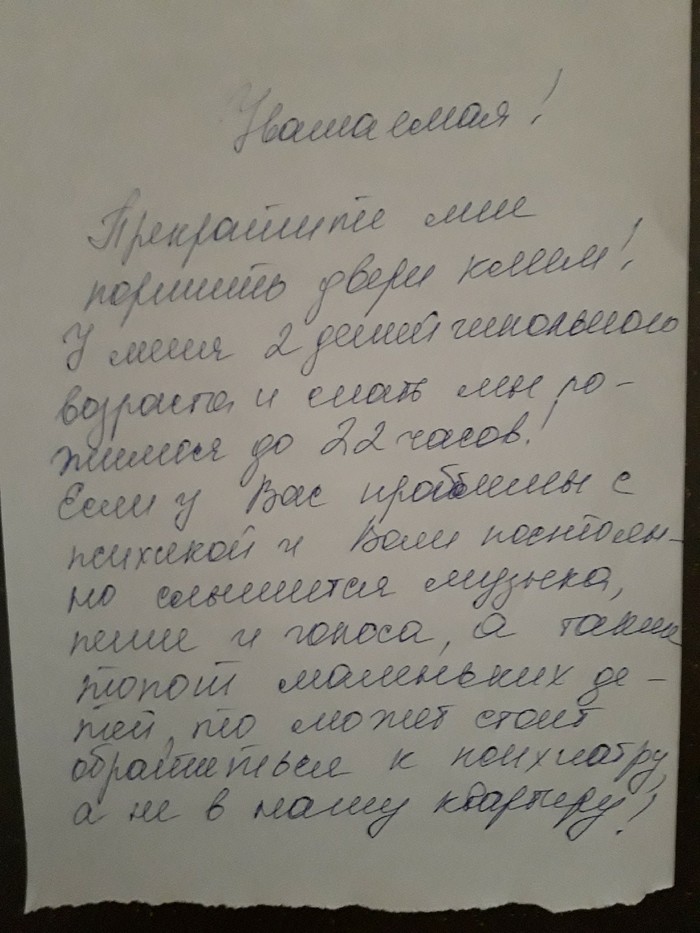 Уважаемая!
Прекратите мне
портить двери клеем!
У меня 2 детей школьного
возраста и спать мы ло-
жимся до 22 часов!
Если у Вас проблемы с
психикой и Вам постоян-
но слышится музыка,
пение и голоса, а также
топот маленьких де-
тей, то может стоит
обратиться к психиатру,
а не в нашу квартиру!